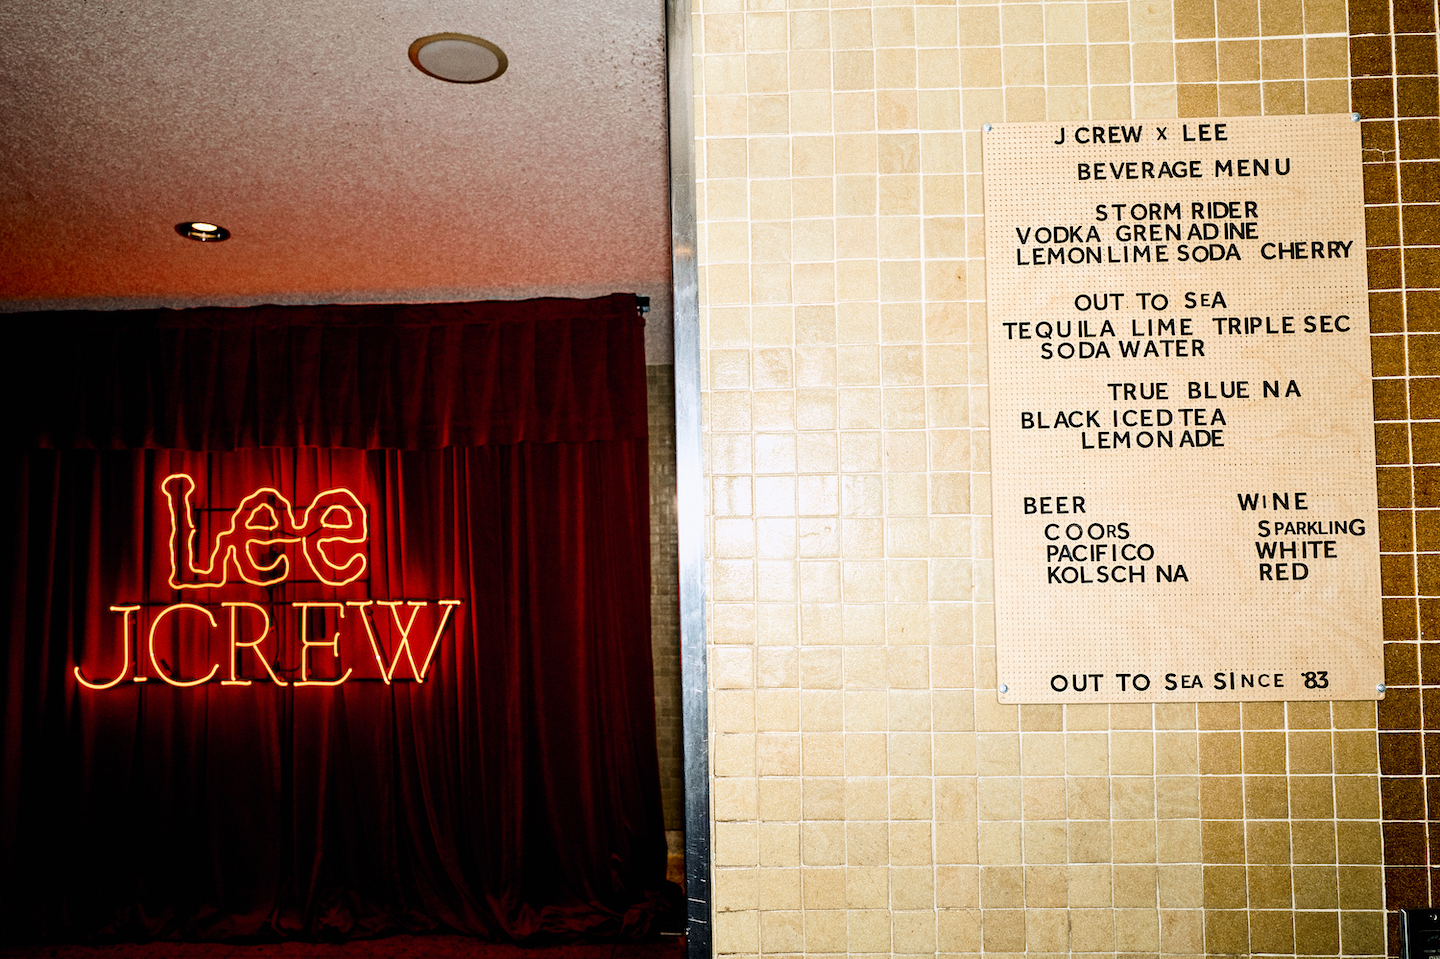 Lee
J.CREW
J CREW X LEE
BEVERAGE MENU
STORM RIDER
VODKA GRENADINE
LEMONLIME SODA CHERRY
OUT TO SEA
TEQUILA LIME TRIPLE SEC
SODA WATER
TRUE BLUE NA
BLACK ICED TEA
LEMONADE
BEER
COORS
PACIFICO
KOLSCH NA
WINE
SPARKLING
WHITE
RED
OUT TO SEA SINCE '83